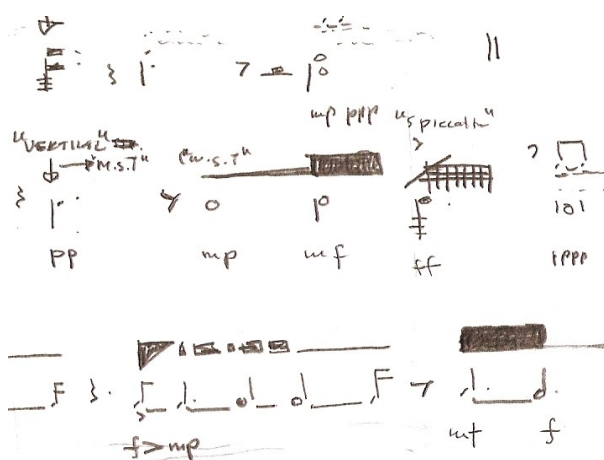 mp ppp "spiccato"
"VERTICAL"
"M.S.T" "M.S.T"
pp mp mf ff ppp
f > mp mf f